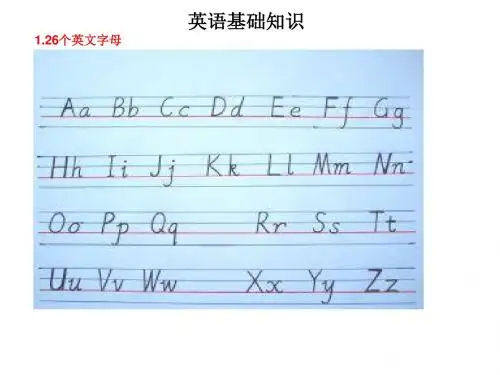 英语基础知识
1.26个英文字母
Aa Bb Cc Dd Ee Ff Gg
Hh Ii Jj Kk Ll Mm Nn
Oo Pp Qq Rr Ss Tt
Uu Vv Ww Xx Yy Zz